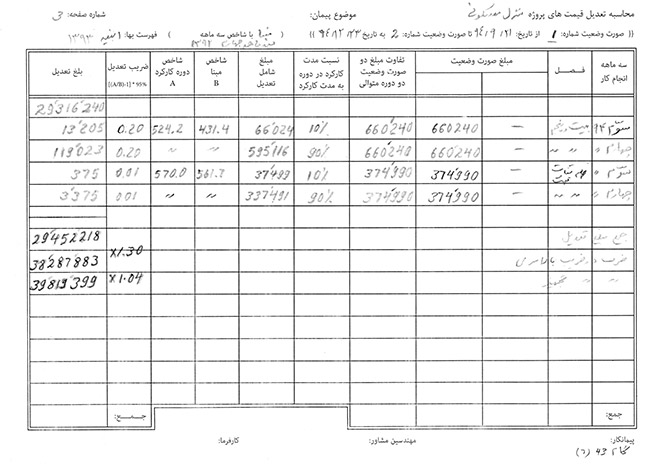 محاسبه تعدیل قیمت های پروژه منزل مسکونی موضوع پیمان: شماره صفحه: 3
(( صورت وضعیت شماره: 1 از تاریخ: 94/9/21 تا صورت وضعیت شماره: 2 به تاریخ 94/12/23 )) ( مبنا با شاخص سه ماهه ) فهرست بها: ابنیه 1393
سه ماهه انجام کار | فصل | مبلغ صورت وضعیت | تفاوت مبلغ دو صورت وضعیت دو دوره متوالی | نسبت مدت کارکرد در دوره به مدت کارکرد | مبلغ شامل تعدیل | شاخص مبنا B | شاخص دوره کارکرد A | ضریب تعدیل [(A/B)-1] * 95% | بلغ تعدیل
29'316'240
سوم 94 | بیست و پنجم | — | 660'240 | 660'240 | 10% | 66'024 | 431.4 | 524.2 | 0.20 | 13'205
چهارم " | " " | — | 660'240 | 660'240 | 90% | 595'116 | " | " | 0.20 | 119'023
سوم " | — | 374'990 | 374'990 | 10% | 37'499 | 561.2 | 570.0 | 0.01 | 375
چهارم " | " " | — | 374'990 | 374'990 | 90% | 337'491 | " | " | 0.01 | 3'375
جمع مبلغ تعدیل | 29'452'218
ضرب در ضریب بالاسری | x1.30 | 38'287'883
" " تجهیز | x1.04 | 39'819'399
جمع: جمع:
پیمانکار: مهندسین مشاور: کارفرما: